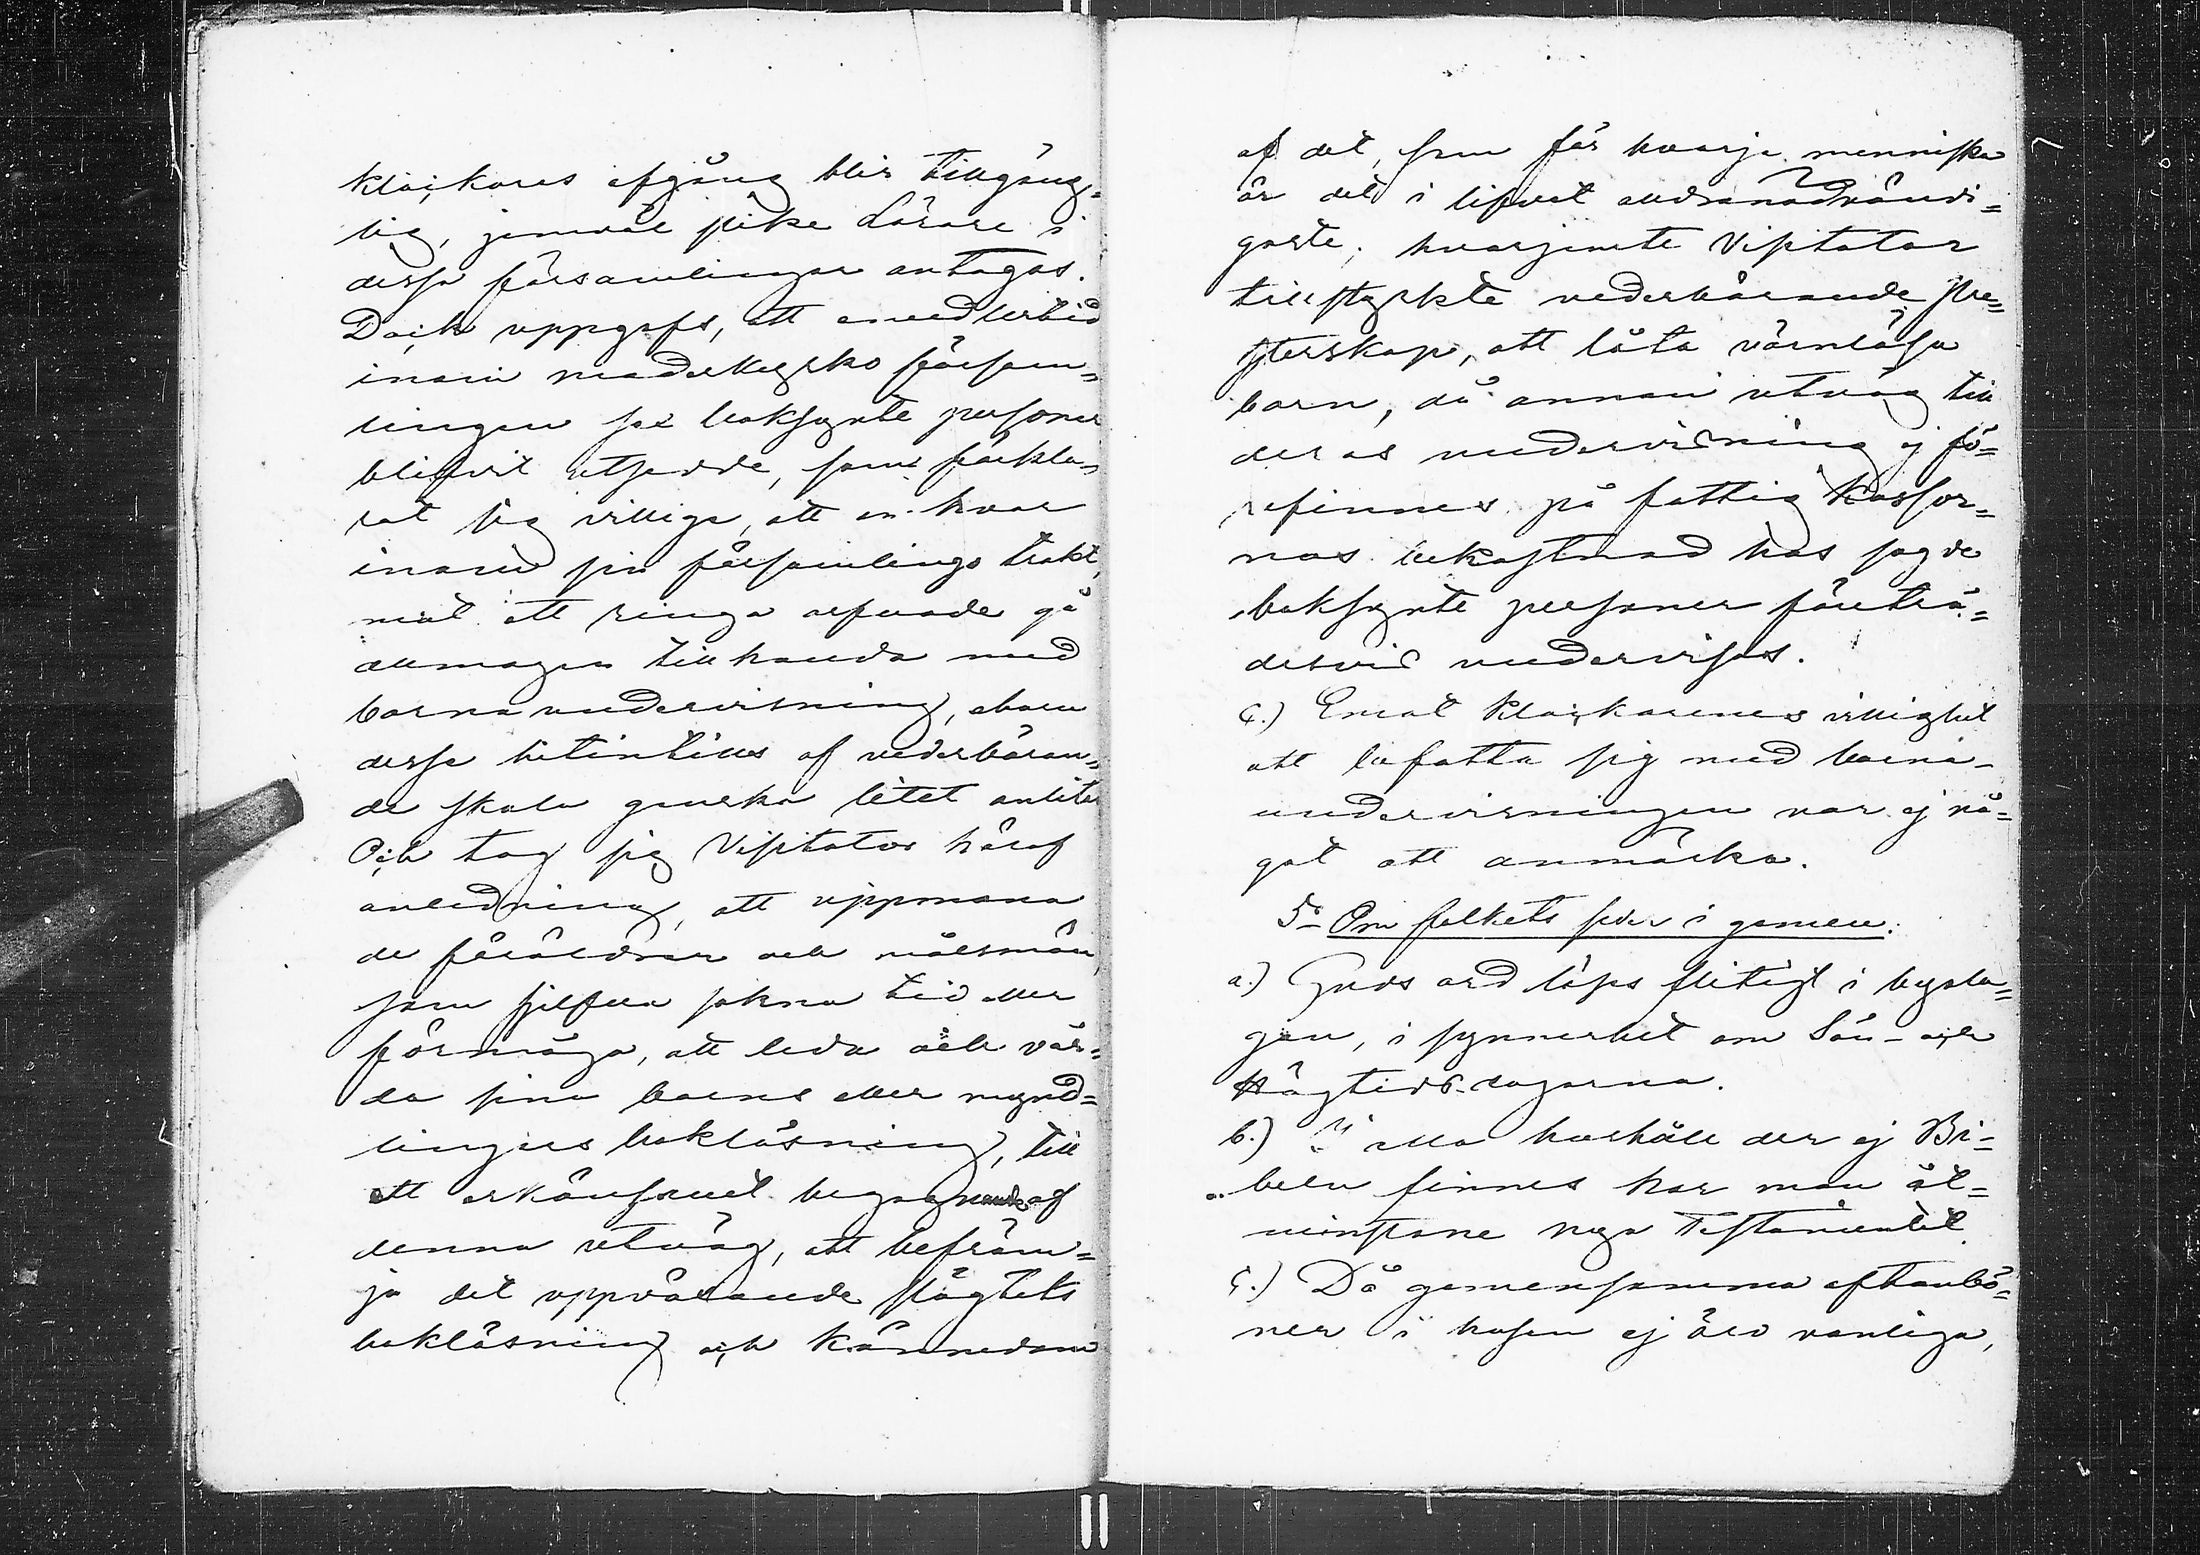 klockares afgång blir tillgäng=
lig, jemväl slike Lärare i
dessa församlingar antagas.
Dock uppgafs, att emedlertid
inom moderkyrko försam=
lingen sex boksynte personer
blifvit utsedde, som förkla=
rat sig villige, att en hvar
inom sin församlings trakt,
mot ett ringa arfvode gå
allmogen tillhanda med
barna undervisning, ehuru
desse hitintills af vederböran=
de skola ganska litet anlitas
Och tog sig Visitator häraf
anledning, att uppmana
de föräldrar och målsmän,
som sjelfva sakna tid eller
förmåga, att leda och vår=
da sina barns eller mynd=
lingars bokläsning, till
ett oskämfrut begagnande af
denna utväg, att befräm=
ja det uppväxande slägtets
bokläsning och kännedom
af det, som för hvarje menniska
är det i lifvet aldranödvändi=
gaste; hvarjemte Visitator
tillstyrkte vederbörande Pre=
sterskap, att låta värnlösa
barn, då annan utväg till
deras undervisning ej fö=
refinnes på fattig kassor=
nas bekostnad hos sagde
boksynte personer företrä=
desvis undervisas.
c.) Emot Klockarenes villighet
att befatta sig med barna-
undervisningen var ej nå=
got att anmärka.
5o Om folkets seder i gemen.
a.) Guds ord läses flitigt i byala=
gen, i synnerhet om Sön- och
Högtids-dagarna.
b.) I alla hushåll der ej Bi=
beln finnes har man åt=
minstone nya Testamentet.
c.) Då gemensamma aftonbö=
ner i husen ej äro vanliga,